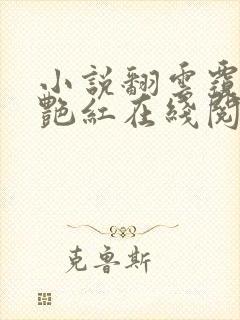 小説翻雲覆
艷紅在綫閱
克魯斯